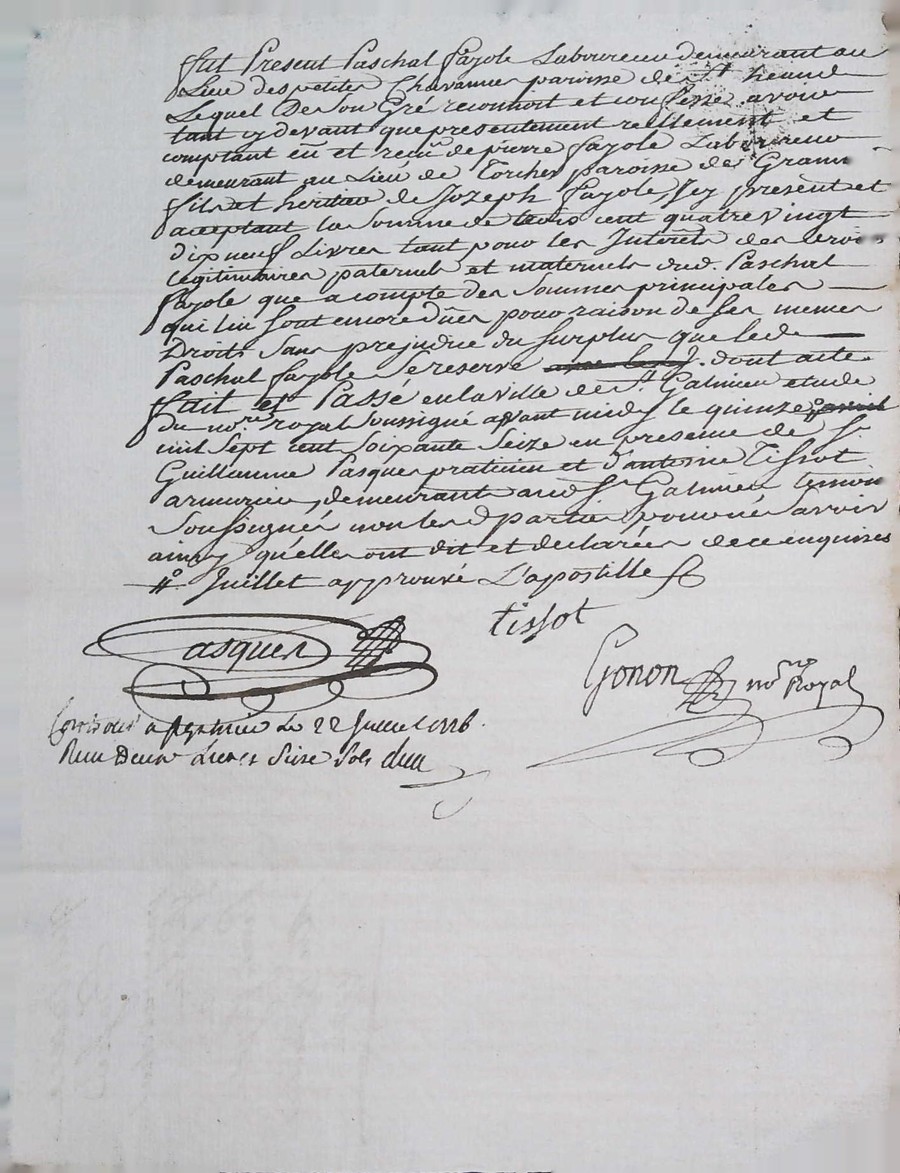 fut Present Paschal fayole Laboureur demeurant au
Lieu des petites Chavannes paroisse de St heand
Lequel De son Gré reconnoit et confesse avoir
tant cy devant que presentement reellement et
comptant eü et reçu de pierre fayole Laboureur
demeurant au Lieu de Torches paroisse de Gram
fils et heritier de Jozeph fayole, Icy present et
aceptant la somme de trois cent quatre vingt
dix neuf Livres tant pour les Interets des Droits
Legitimaires paternels et maternels dud. Paschal
fayole que a compte des sommes principales
qui lui sont encore dües pour raison de ses memes
Droits sans prejudice du surplus que led
Paschal fayole se reserve dont acte
fait et Passé en la ville de St Galmier etude
du nore royal soussigné avant midy le quinze
mil sept cent soixante seize en presence de Sr
Guillaume Pasquer praticien et d'antoine Tissot
armurier, demeurants aud St Galmier temoins
soussignés non les parties pour ne savoir
ainsy qu'elles ont dit et declarées de ce enquises
# Juillet approuvé L'apostille
tissot
Pasquer
Gonon nore Royal
a St galmier Le 22 Juillet 1776.
Recu Deux Livres Seize Sols